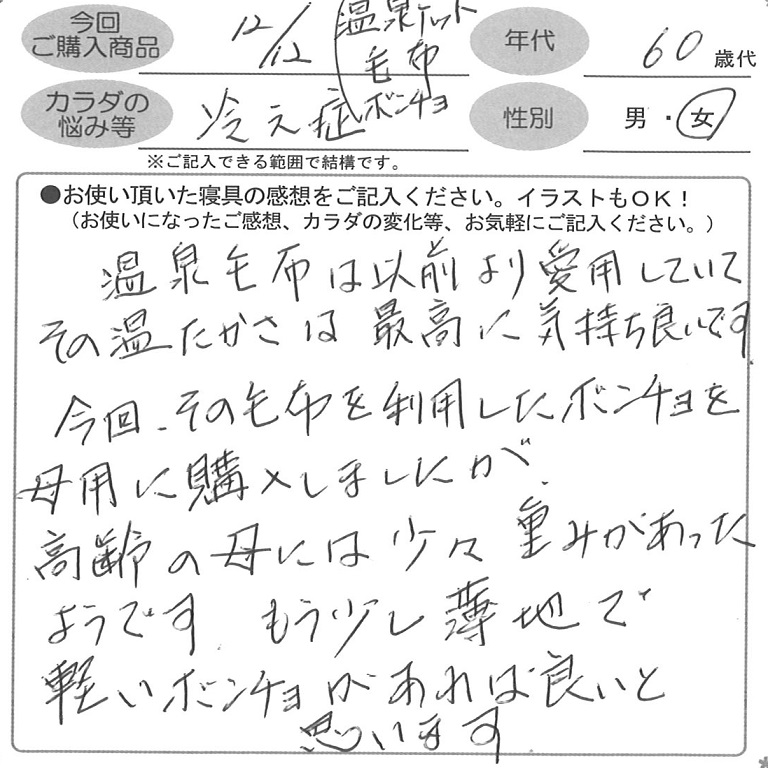 今回
ご購入商品
12/12
温泉ケット
毛布
ボンチョ
年代
60歳代
カラダの
悩み等
冷え症
性別
男・女
※ご記入できる範囲で結構です。
●お使い頂いた寝具の感想をご記入ください。イラストもOK！
（お使いになったご感想、カラダの変化等、お気軽にご記入ください。）
温泉毛布は以前より愛用していて
その温たかさは最高に気持ち良いです
今回、その毛布を利用したボンチョを
母用に購入しましたが、
高齢の母には少々重みがあった
ようです もう少し薄地で
軽いボンチョがあれば良いと
思います